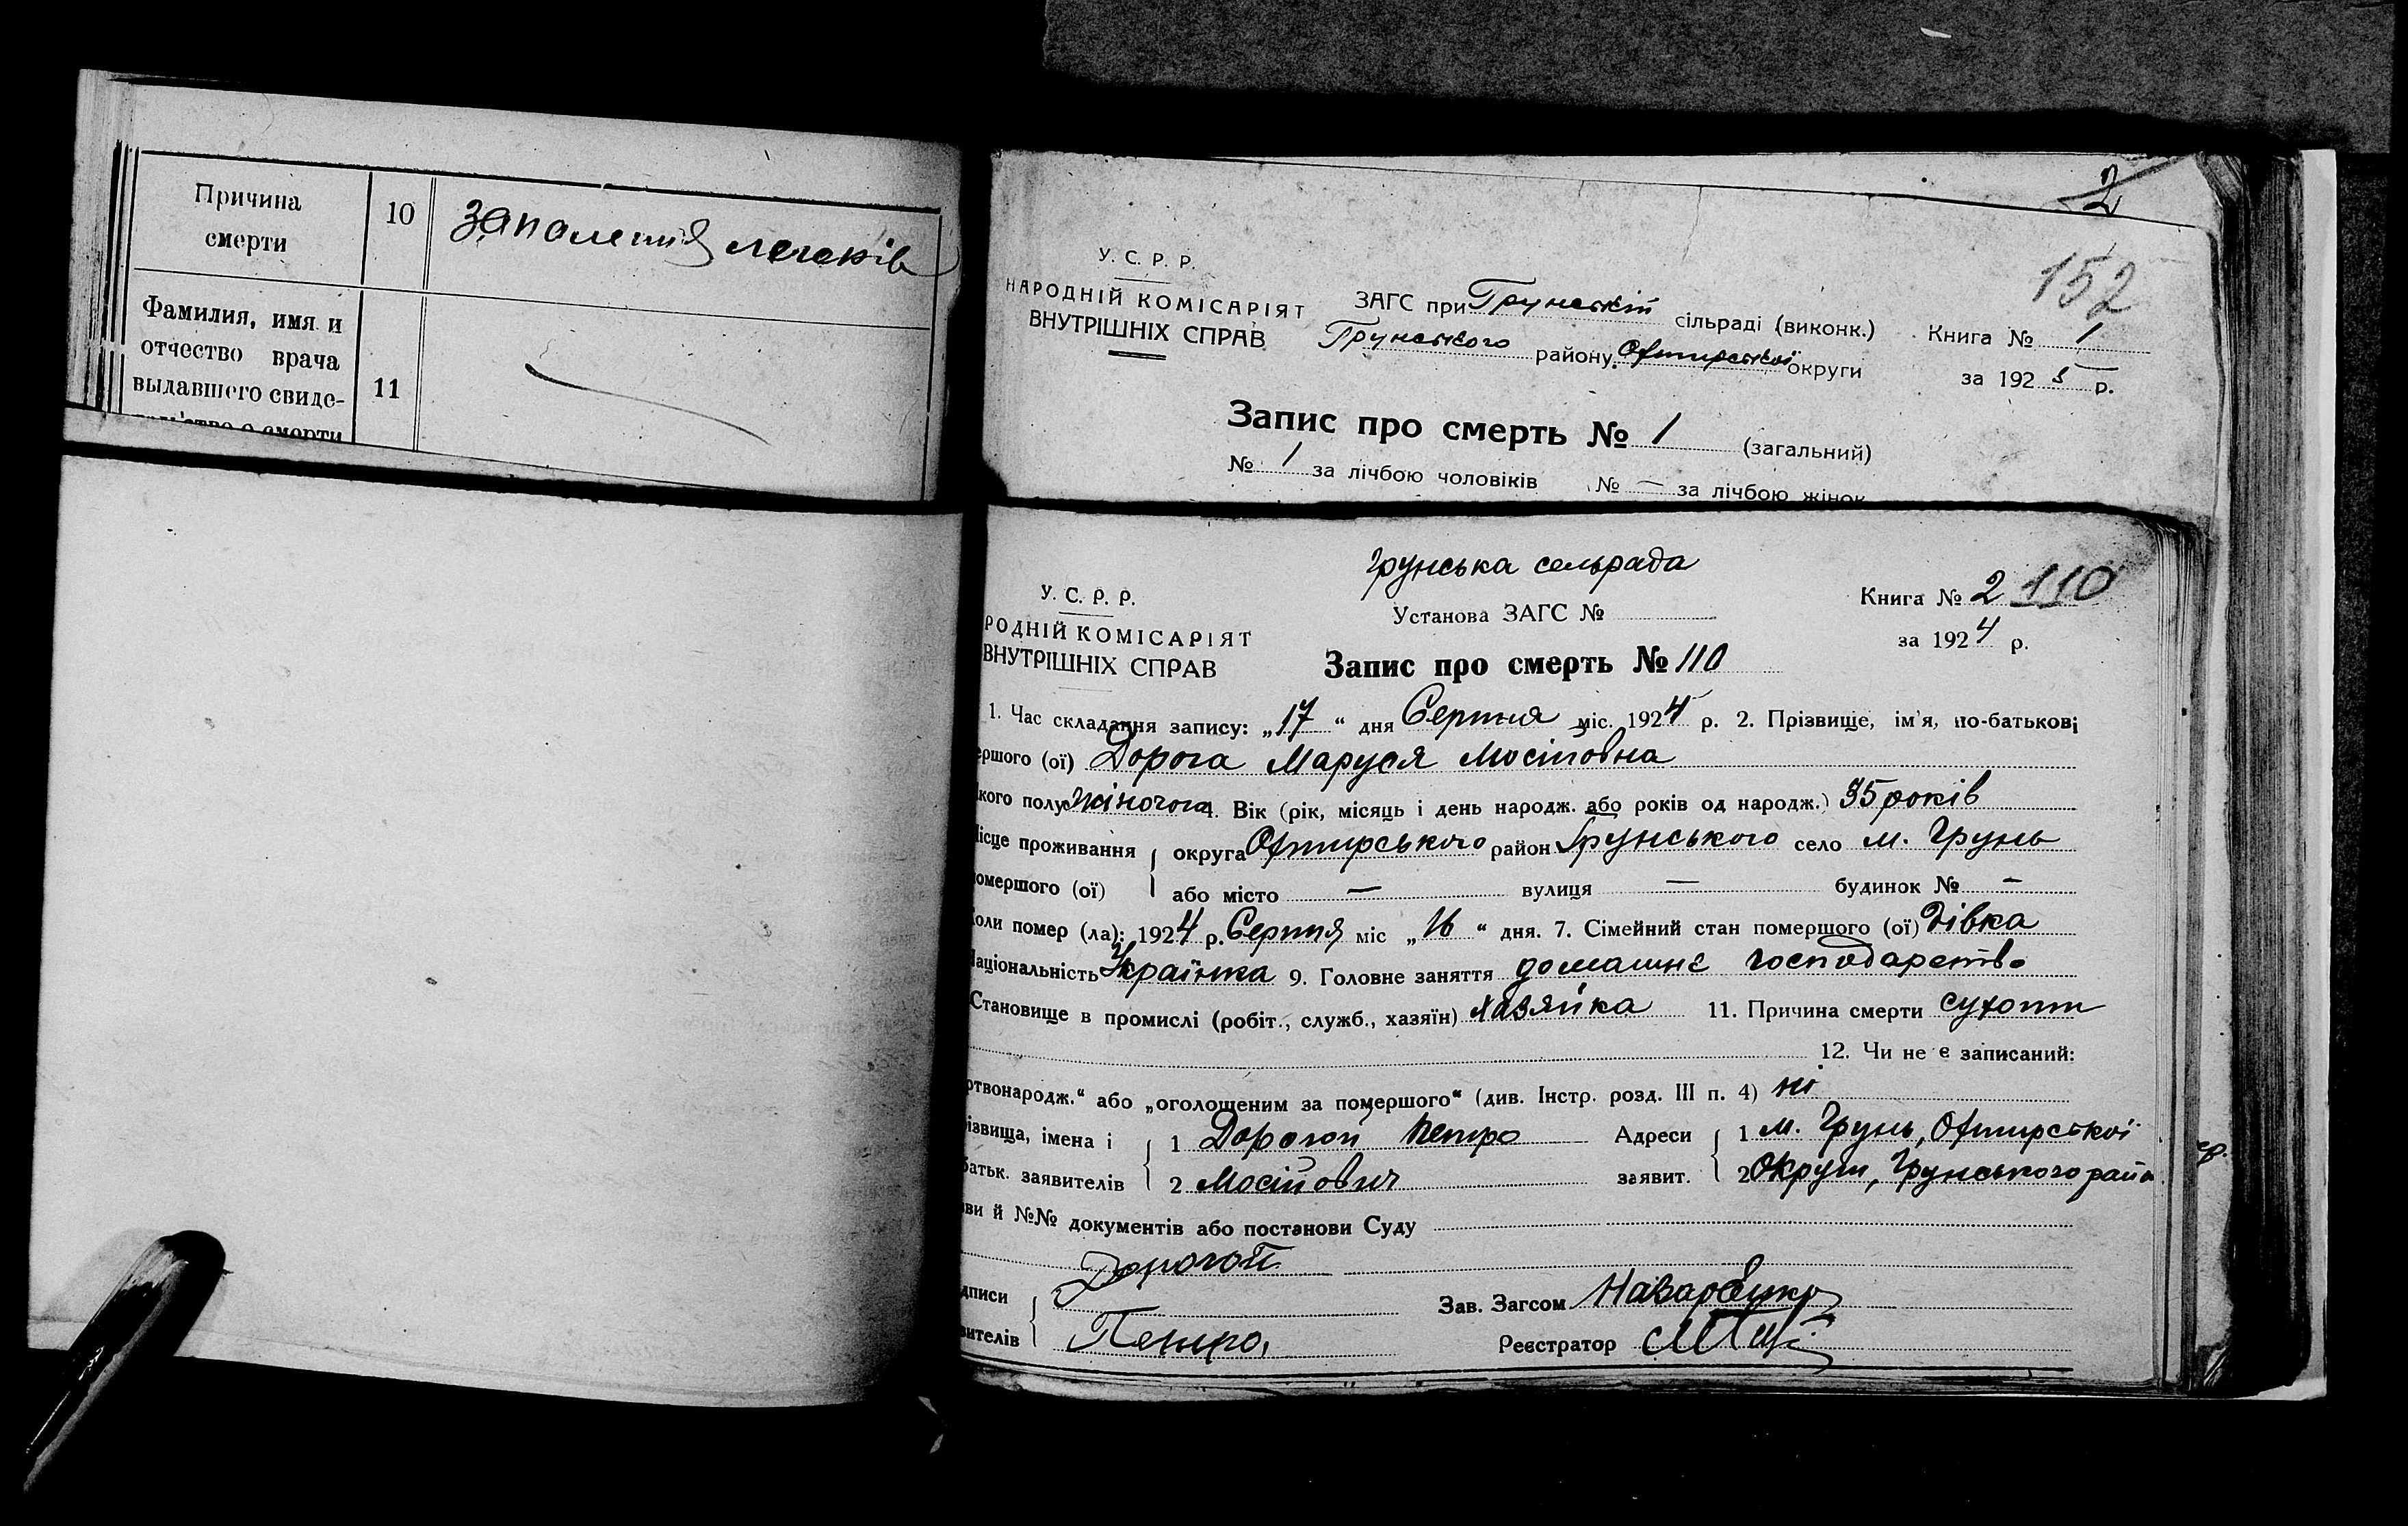 Причина смерти 10 запаления легеків
Фамилия, имя и
отчество врача
выдавшего свиде- 11
2
152
У. С. Р. Р.
НАРОДНІЙ КОМІСАРІЯТ
ВНУТРІШНІХ СПРАВ
ЗАГС при Грунській сільраді (виконк.) Книга № 1
Грунського району Охтирської округи за 1925 р.
Запис про смерть № 1 (загальний)
№ 1 за лічбою чоловіків № — за лічбою жінок
Грунська сельрада
У. С. Р. Р.
РОДНІЙ КОМІСАРІЯТ
ВНУТРІШНІХ СПРАВ
Установа ЗАГС №
Книга № 2 110
за 1924 р.
Запис про смерть № 110
1. Час складання запису: „17“ дня Серпня міс. 1924 р. 2. Прізвище, ім'я, по-батькові
ершого (ої) Дорога Маруся Мосіївна
кого полу жіночога 4. Вік (рік, місяць і день народж. або років од народж.) 35 років
ісце проживання округа Охтирського район Грунського село м. Грунь
омершого (ої) або місто — вулиця — будинок № —
оли помер (ла): 1924 р. Серпня міс „16“ дня. 7. Сімейний стан помершого (ої) дівка
аціональність Українка 9. Головне заняття домашнє господарство
Становище в промислі (робіт., служб., хазяїн) хазяйка 11. Причина смерти сухоти
12. Чи не є записаний:
ртвонародж.“ або „оголошеним за помершого“ (див. Інстр. розд. III п. 4) ні
ізвища, імена і 1 Дорогой Петро Адреси 1 м. Грунь, Охтирської
батьк. заявителів 2 Мосійович заявит. 2 Округи, Грунського райн
зви й №№ документів або постанови Суду
Дорогой
дписи
Зав. Загсом Назаренко
вителів Петро,
Реєстратор